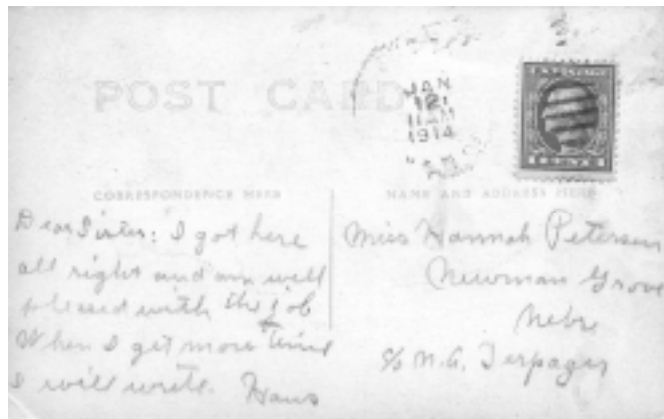 POST CARD
JAN
12
11 AM
1914
CORRESPONDENCE HERE
NAME AND ADDRESS HERE
Dear Sister: I got here
all right and am well
pleased with the job
When I get more time
I will write. Hans
Miss Hannah Petersen
Newman Grove
Nebr
c/o N.A.